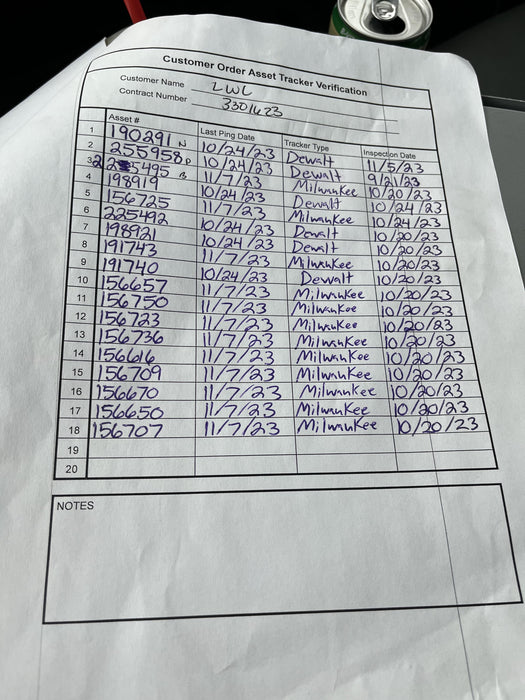 Customer Order Asset Tracker Verification
Customer Name LWL
Contract Number 3301623
Asset # Last Ping Date Tracker Type Inspection Date
1 190291 N 10/24/23 Dewalt 11/5/23
2 255958 D 10/24/23 Dewalt 9/21/23
3 225495 B 11/7/23 Milwaukee 10/20/23
4 198919 10/24/23 Dewalt 10/24/23
5 156725 11/7/23 Milwaukee 10/24/23
6 225492 10/24/23 Dewalt 10/20/23
7 198921 10/24/23 Dewalt 10/20/23
8 191743 11/7/23 Milwaukee 10/20/23
9 191740 10/24/23 Dewalt 10/20/23
10 156657 11/7/23 Milwaukee 10/20/23
11 156750 11/7/23 Milwaukee 10/20/23
12 156723 11/7/23 Milwaukee 10/20/23
13 156736 11/7/23 Milwaukee 10/20/23
14 156616 11/7/23 Milwaukee 10/20/23
15 156709 11/7/23 Milwaukee 10/20/23
16 156670 11/7/23 Milwaukee 10/20/23
17 156650 11/7/23 Milwaukee 10/20/23
18 156707 11/7/23 Milwaukee 10/20/23
19
20
NOTES